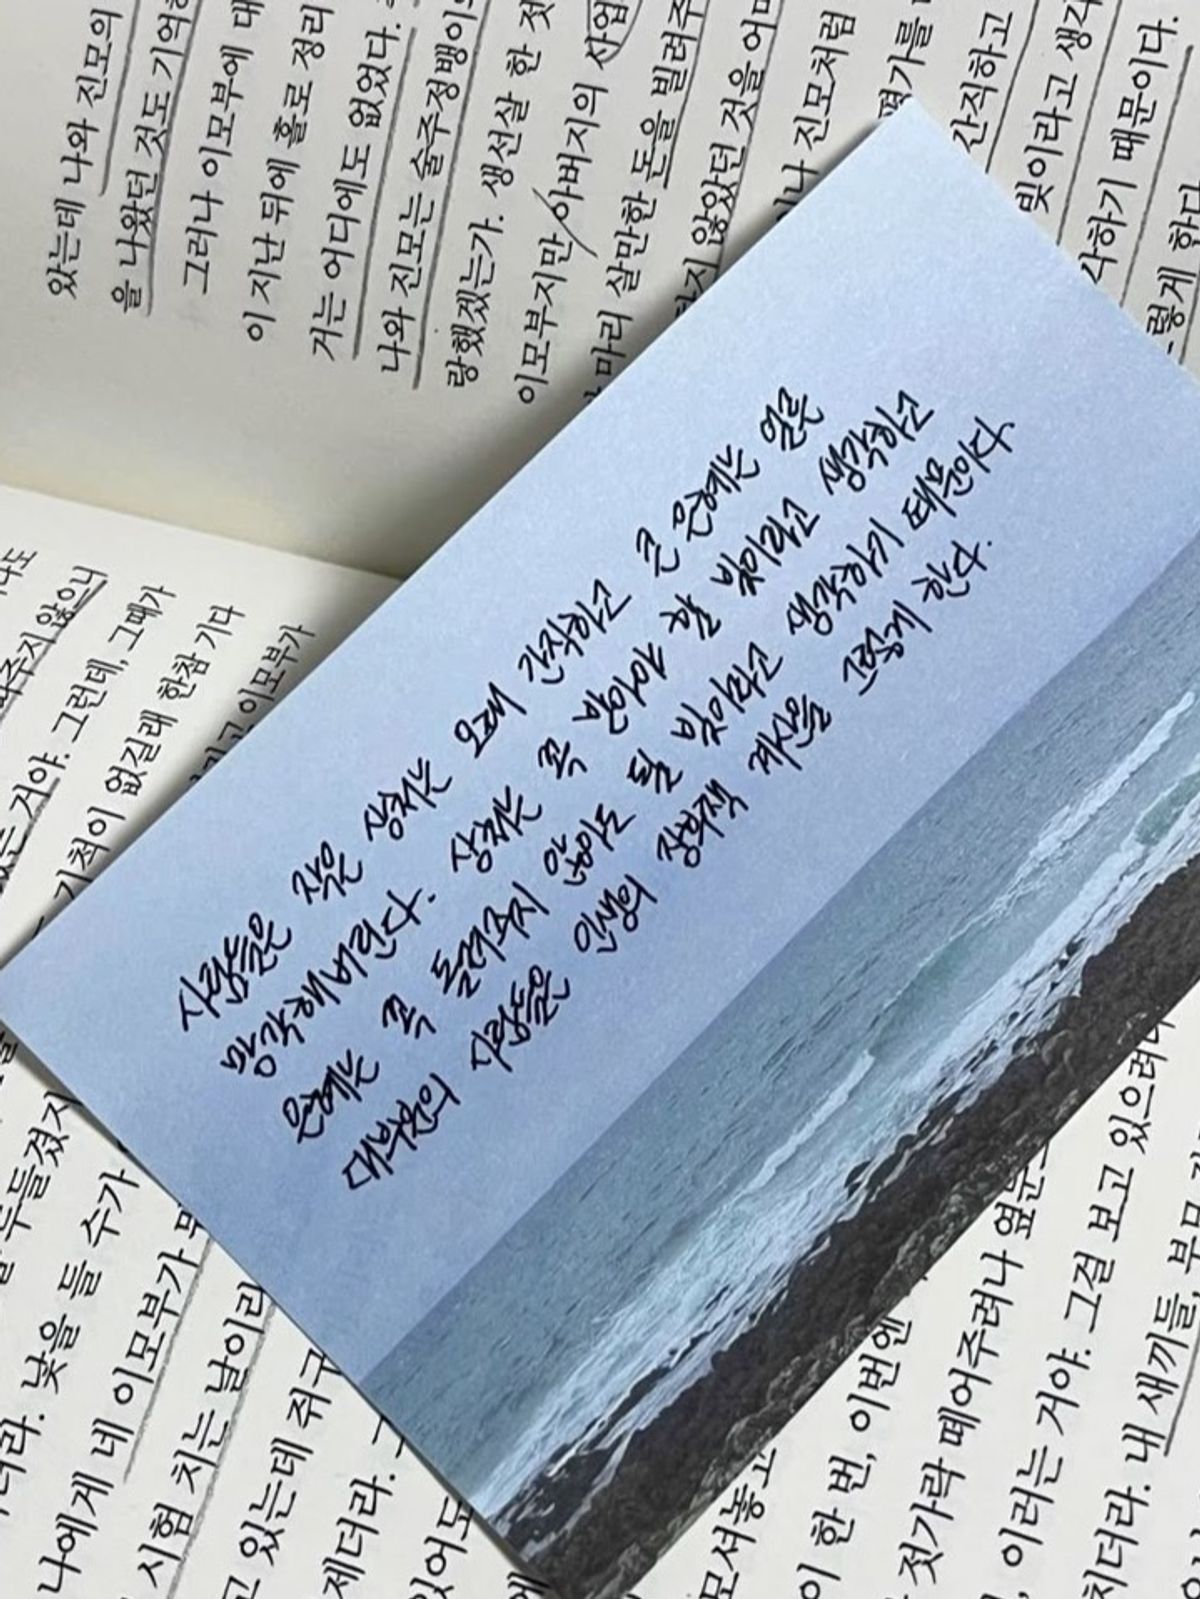 있는데 나와 진모의
을 나왔던 것도 기억하
그러나 이모부에 대
이 지난 뒤에 홀로 정리
거는 어디에도 없었다.
나와 진모는 술주정뱅이
랑했겠는가. 생선살 한 젓
이모부지만 아버지의 사업
마리 살만한 돈을 빌려주
하지 않았던 것을 어머
나 진모처럼
평가를
간직하고
빚이라고 생각
각하기 때문이다.
렇게 한다
사람들은 작은 상처는 오래 간직하고 큰 은혜는 얼른
망각해버린다. 상처는 꼭 받아야 할 빚이라고 생각하고
은혜는 꼭 돌려주지 않아도 될 빚이라고 생각하기 때문이다.
대부분의 사람들은 인생의 장부책 계산을 그렇게 한다.
주지 않으니
는 거야. 그런데, 그때가
기척이 없길래 한참 기다
고 이모부가
두들겼지
더라. 낯을 들 수가
나에게 네 이모부가
시험 치는 날이라
고 있는데 쥐구
제더라.
있어도
모셔놓고
이 한 번, 이번엔
젓가락 떼어주려나 옆눈
이러는 거야. 그걸 보고 있으려
치더라. 내 새끼들, 부모